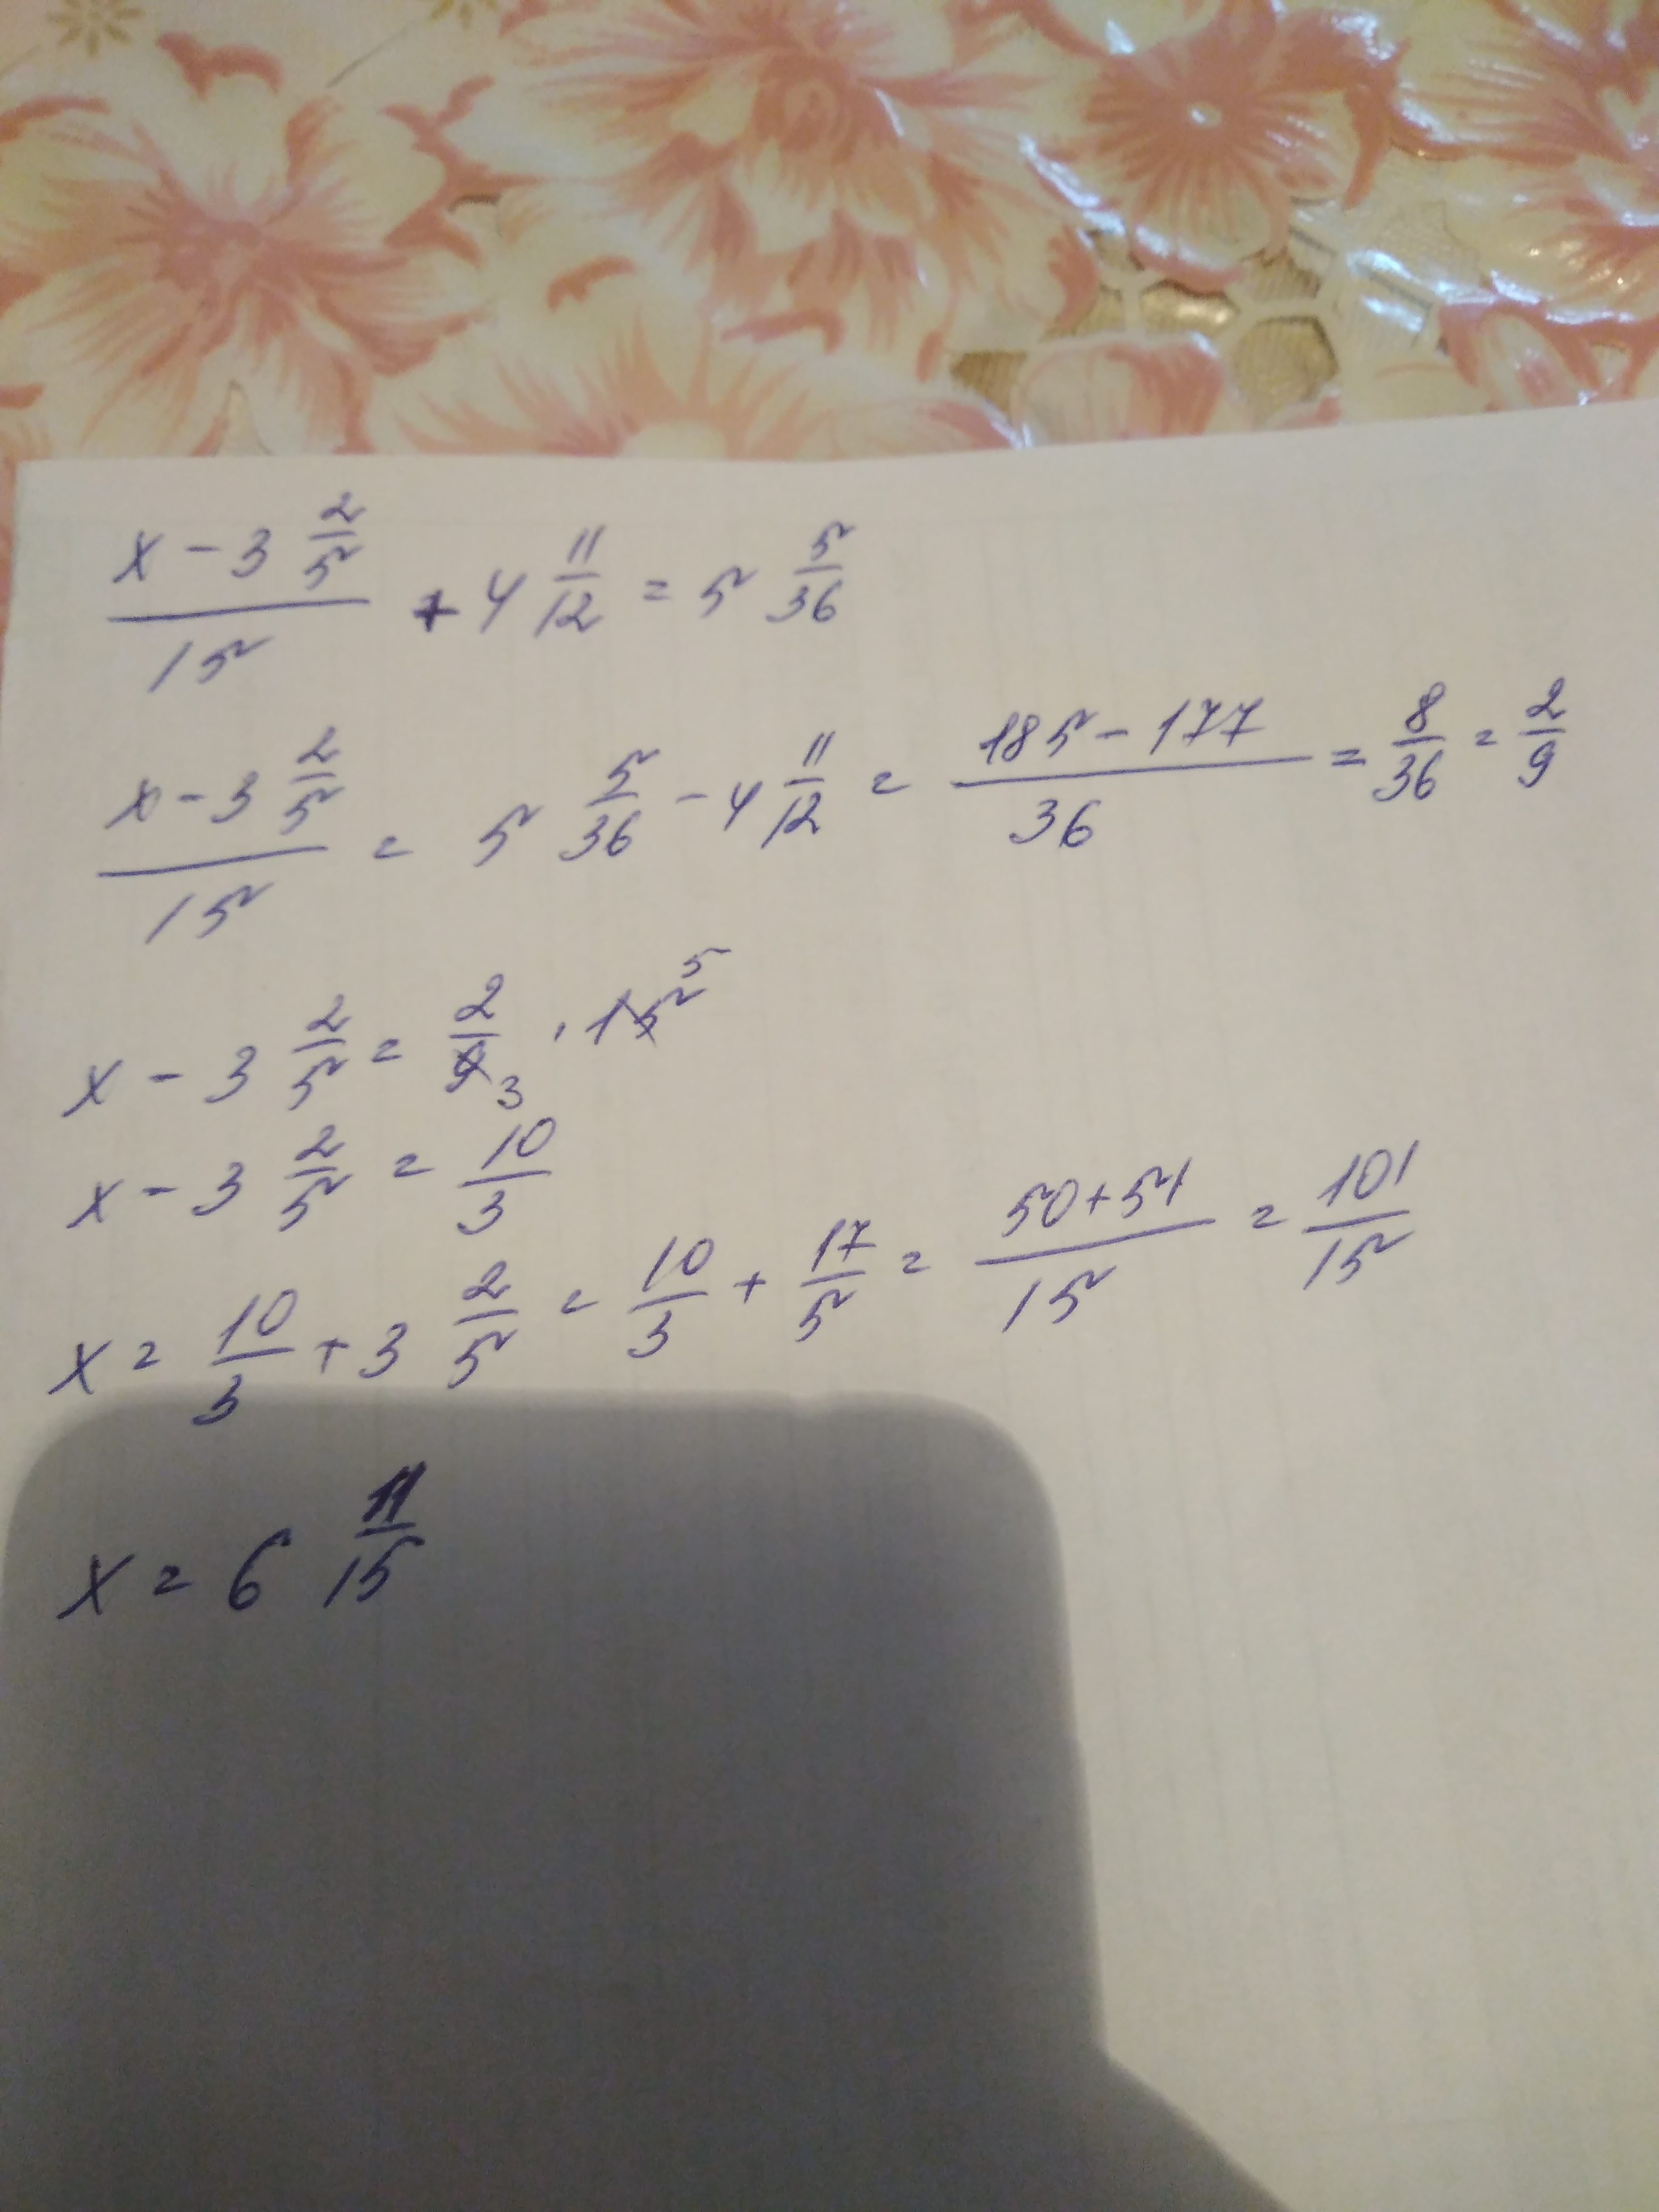 (x - 3 2/5)/15 + 4 11/12 = 5 5/36
(x - 3 2/5)/15 = 5 5/36 - 4 11/12 = (185 - 177)/36 = 8/36 = 2/9
x - 3 2/5 = 2/9 3 · 15 5
x - 3 2/5 = 10/3
x = 10/3 + 3 2/5 = 10/3 + 17/5 = (50 + 51)/15 = 101/15
x = 6 11/15